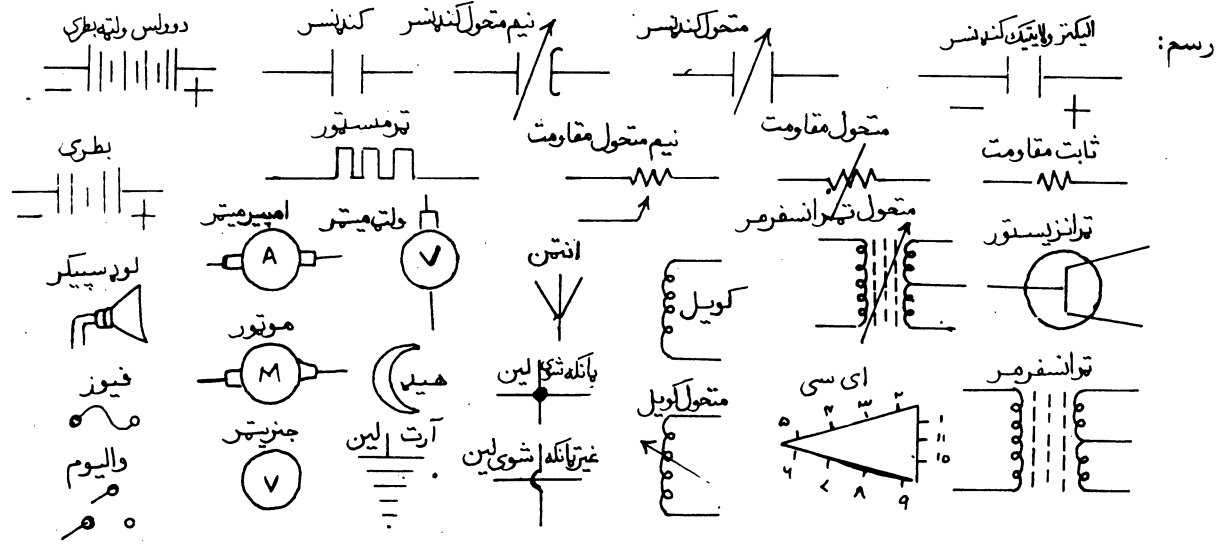 رسم:
الیکترولایتیک کندنسر
متحول کندنسر
نیم متحول کندنسر
کندنسر
دوولس ولټه بطری
− +
− +
ثابت مقاومت
متحول مقاومت
نیم متحول مقاومت
ترمستور
بطری
− +
ترانزیستور
متحول ترانسفرمر
کویل
انتن
ولټ میتر
V
امپیر میتر
A
لوډسپیکر
ترانسفرمر
ای سی
۱ ۲ ۳ ۴ ۵ ۶ ۷ ۸ ۹ ۱۰ ۱۱
متحول کویل
لین
هیډ
موټور
M
فیوز
غیر شوی لین
آرت لین
جنریتر
V
والیوم